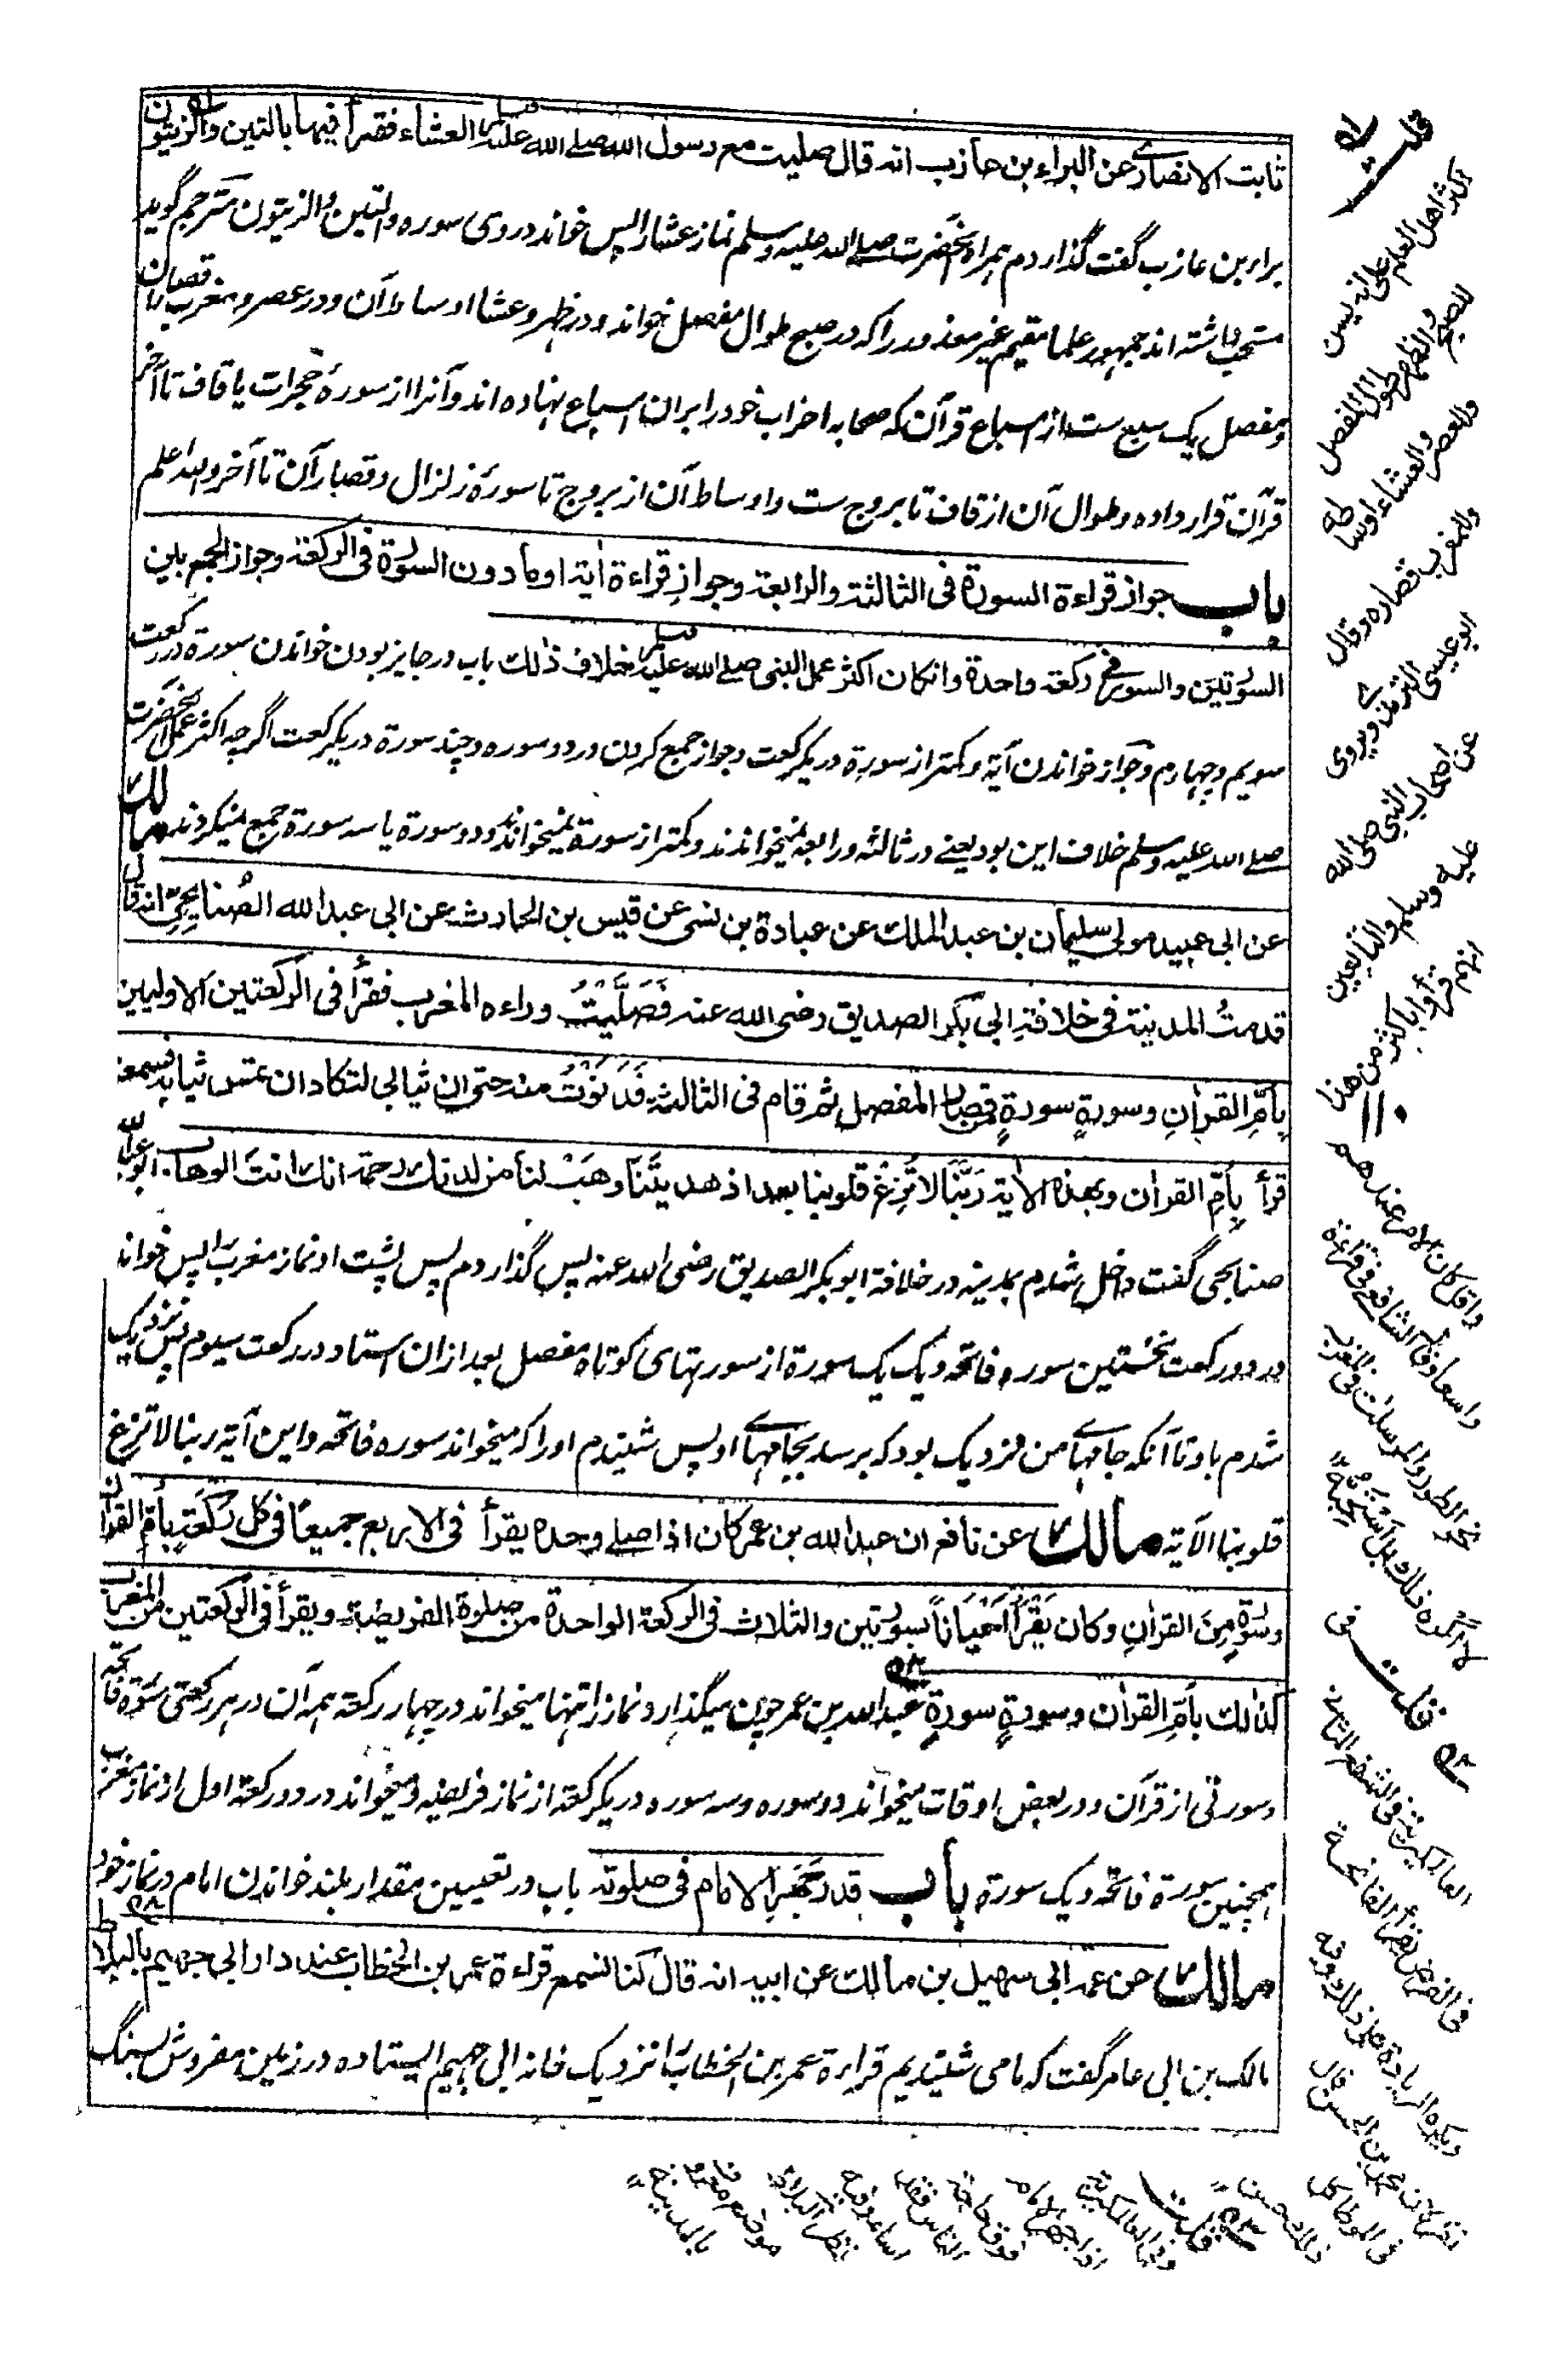 ثابت الانصاری عن البراء بن عازب انه قال صلیت مع رسول الله صلے الله علیه وسلم العشاء فقرأ فیها بالتین والزیتون
براء بن عازب گفت گذاردم همراه آنحضرت صلے الله علیه وسلم نماز عشا را پس خواند در وی سوره والتین والزیتون مترجم گوید
مستحب داشته اند جمهور علما مقیم غیر معذور را که در صبح طوال مفصل خواند و در ظهر و عشا اوساط آن و در عصر و مغرب قصار آن را
و مفصل یک سبع ست از اسباع قرآن که صحابه احزاب خود را بران اسباع نهاده اند و آنرا از سورهٔ حجرات یا قاف تا آخر
قرآن قرار داده و طوال آن از قاف تا بروج ست و اوساط آن از بروج تا سورهٔ زلزال و قصار آن تا آخر والله اعلم
باب جواز قراءة السورة فی الثالثة والرابعة وجواز قراءة اٰیة او ما دون السورة فی الرکعة وجواز الجمع بین
السورتین والسور فی رکعة واحدة وانکان اکثر عمل النبی صلے الله علیه وسلم بخلاف ذٰلك باب در جایز بودن خواندن سورة در رکعت
سویم و چهارم و جواز خواندن آیة و کمتر از سورة در یک رکعت و جواز جمع کردن در دو سوره و چند سورة در یک رکعت اگرچه اکثر عمل آنحضرت
صلے الله علیه وسلم خلاف این بود یعنے در ثالثه و رابعه نمیخواندند و کمتر از سورة نمیخواندند و دو سورة یا سه سورة جمع نمیکردند مالك
عن ابی عبید مولی سلیمان بن عبد الملك عن عبادة بن نسی عن قیس بن الحارث عن ابی عبد الله الصُنابحیِّ انه قال
قدمتُ المدینة فی خلافةِ ابی بکر الصدیق رضی الله عنه فَصَلَّیْتُ وراءه المغرب فقرأ فی الرکعتین الاولیین
بِاُمِّ القراٰنِ وسورةٍ سورةٍ من قصار المفصل ثم قام فی الثالثة فَدَنَوْتُ منه حتی ان ثیابی لتکاد ان تمس ثیابه فسمعته
قرأ بِاُمِّ القراٰن وبهذه الاٰیة رَبَّنَا لَا تُزِغْ قلوبنا بعد اذ هدیتَنا وهَبْ لنا من لدنك رحمة انك انتَ الوهاب ابو عبد الله
صنابحی گفت داخل شدم بمدینه در خلافة ابو بکر الصدیق رضی الله عنه پس گذاردم پس پشت او نماز مغرب را پس خواند
در دو رکعت نخستین سوره فاتحه و یک یک سورة از سورتهای کوتاه مفصل بعد ازان استاد در رکعت سیوم پس نزدیک
شدم باو تا آنکه جامهاے من نزدیک بود که برسد بجامهاے او پس شنیدم او را که میخواند سوره فاتحه و این آیة ربنا لا تزغ
قلوبنا الآیة مالك عن نافع ان عبد الله بن عمر کان اذا صلے وحده یقرأ فی الاربع جمیعًا فی کل رکعةٍ بأمّ القراٰن
وسورةٍ مِنَ القراٰنِ وکان یَقْرَأ اَحْیَاناً بسورتین والثلاث فی الرکعة الواحدة من صلوة الفریضة ویقرأ فی الرکعتین من المغرب
کذالك بأُمِّ القراٰن وسورةٍ سورةٍ عبد الله بن عمر چون میگذارد نماز را تنها میخواند در چهار رکعة همه آن در هر رکعتی سورة فاتحه
و سورتی از قرآن و در بعض اوقات میخواند دو سوره و سه سوره در یک رکعته از نماز فریضه و میخواند در دو رکعة اول از نماز مغرب
همچنین سورة فاتحه و یک سورة باب قدر جَهْرِ الامام فی صلوته باب در تعیین مقدار بلند خواندن امام در نماز خود
مالك عن عمه ابی سهیل بن مالك عن ابیه انه قال کنا نسمع قراءة عمر بن الخطاب عند دار ابی جهیم بالبلاط
مالک بن ابی عامر گفت که ما می شنیدیم قراءة عمر بن الخطاب را نزدیک خانه ابی جهیم ایستاده در زمین مفروش بسنگ
قلت
اکثر اهل العلم علی انه یسن
للصبح والظهر طوال المفصل
وللعصر والعشاء اوساطه
وللمغرب قصاره وقال
ابو عیسی الترمذی ویروی
عن اصحاب النبی صلی الله
علیه وسلم والتابعین
انهم قرؤا باکثر من هذا
واقل کان الامر عندهم
واسعا وقال الشافعی فی قراءة
الطور والمرسلات فی المغرب
لا اکره ذلك بل استحبه
قلت فی
العالمگیریة فی الشفع الثانی
فی الفرض یقرأ الفاتحة
ویکره الزیادة علی ذلك
محمد بن الحسن قال
فی الموطا
ذلك حسن
قلت
وفی العالمگیریة
اذا جهر الامام
فوق حاجة
الناس فقد
اساء
موضع معین
بالمدینة